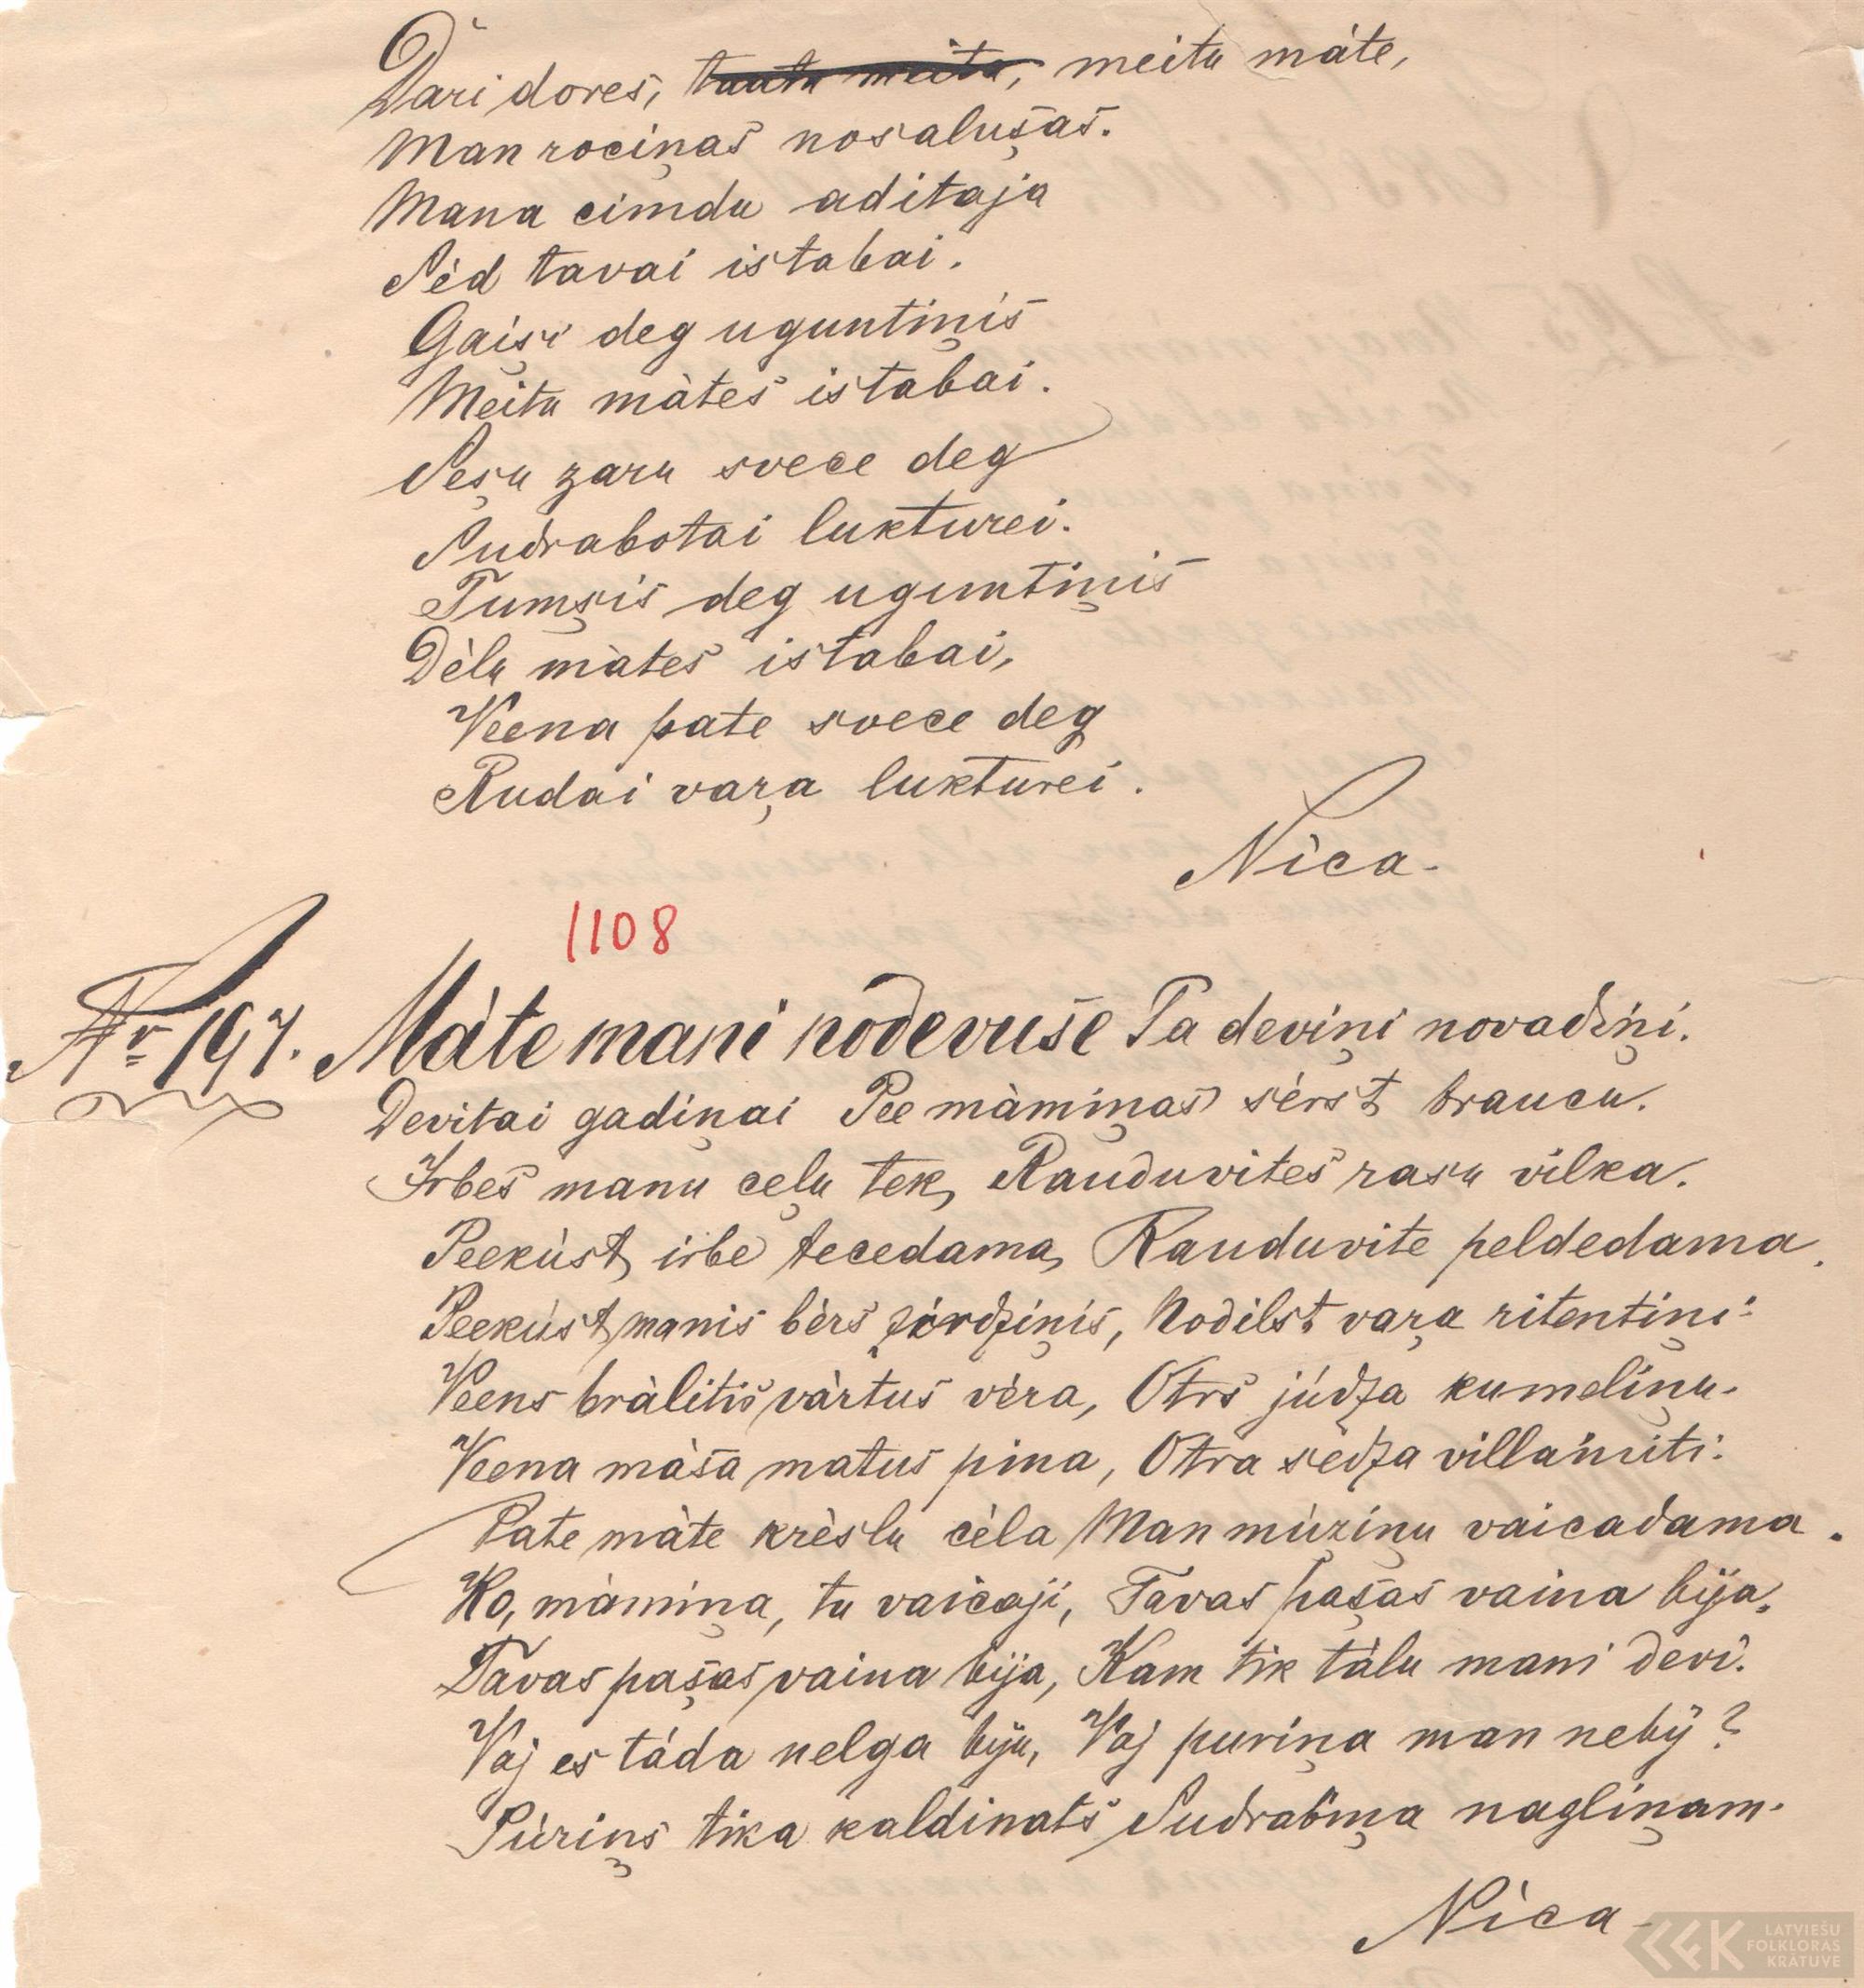 Dari dores, ~~tautu meitu,~~ meitu máte,
Man rociņas̄ nosaluşas̄.
Mana cimdu aditaja
Sèd tavai istabai.
Gaişi deg uguntiņis̄
Meitu màtes̄ istabai.
Seşu zaru svece deg
Sudrabotai lukturei.
Tumşis̄ deg uguntiņis̄
Dèlu màtes̄ istabai,
Veena pate svece deg
Rudai vaŗa lukturei.
Nica.
1108
Nr 197. Màte mani nodevus̄e Pa deviņi novadiņi.
Devitai gadiņai Pee màmiņas̄ sérst braucu.
Irbes̄ manu ceļu tek, Rauduvites̄ rasu vilka.
Peekùst irbe tecedama, Rauduvite peldedama.
Peekùst manis bèrs̄ zirdziņis, Nodilst vaŗa ritentiņi:
Veens bràlitis̄ vàrtus̄ vèra, Otrs̄ júdza kumeliņu.
Veena màs̄a matus pina, Otra sèdza villaìniti:
Pate màte krèslu cèla Man mùziņu vaicadama.
Ko, màmiņa, tu vaicaji, Tavas paşas vaina bija,
Tavas paşas vaina bija, Kam tik tàlu mani devi.
Vaj es tàda nelga biju, Vaj puriņa man nebij?
Pùriņs tika kaldinats̄ Sudrabiņa nagliņam.
Nica
LATVIEŠU
FOLKLORAS
KRĀTUVE